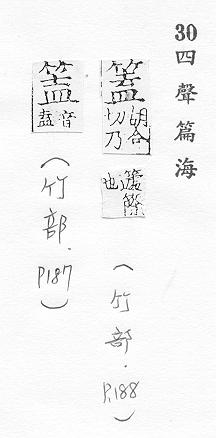 30四聲篇海
篕胡合切乃籧篨也
(竹部.P.188)
篕音盍
(竹部.P187)